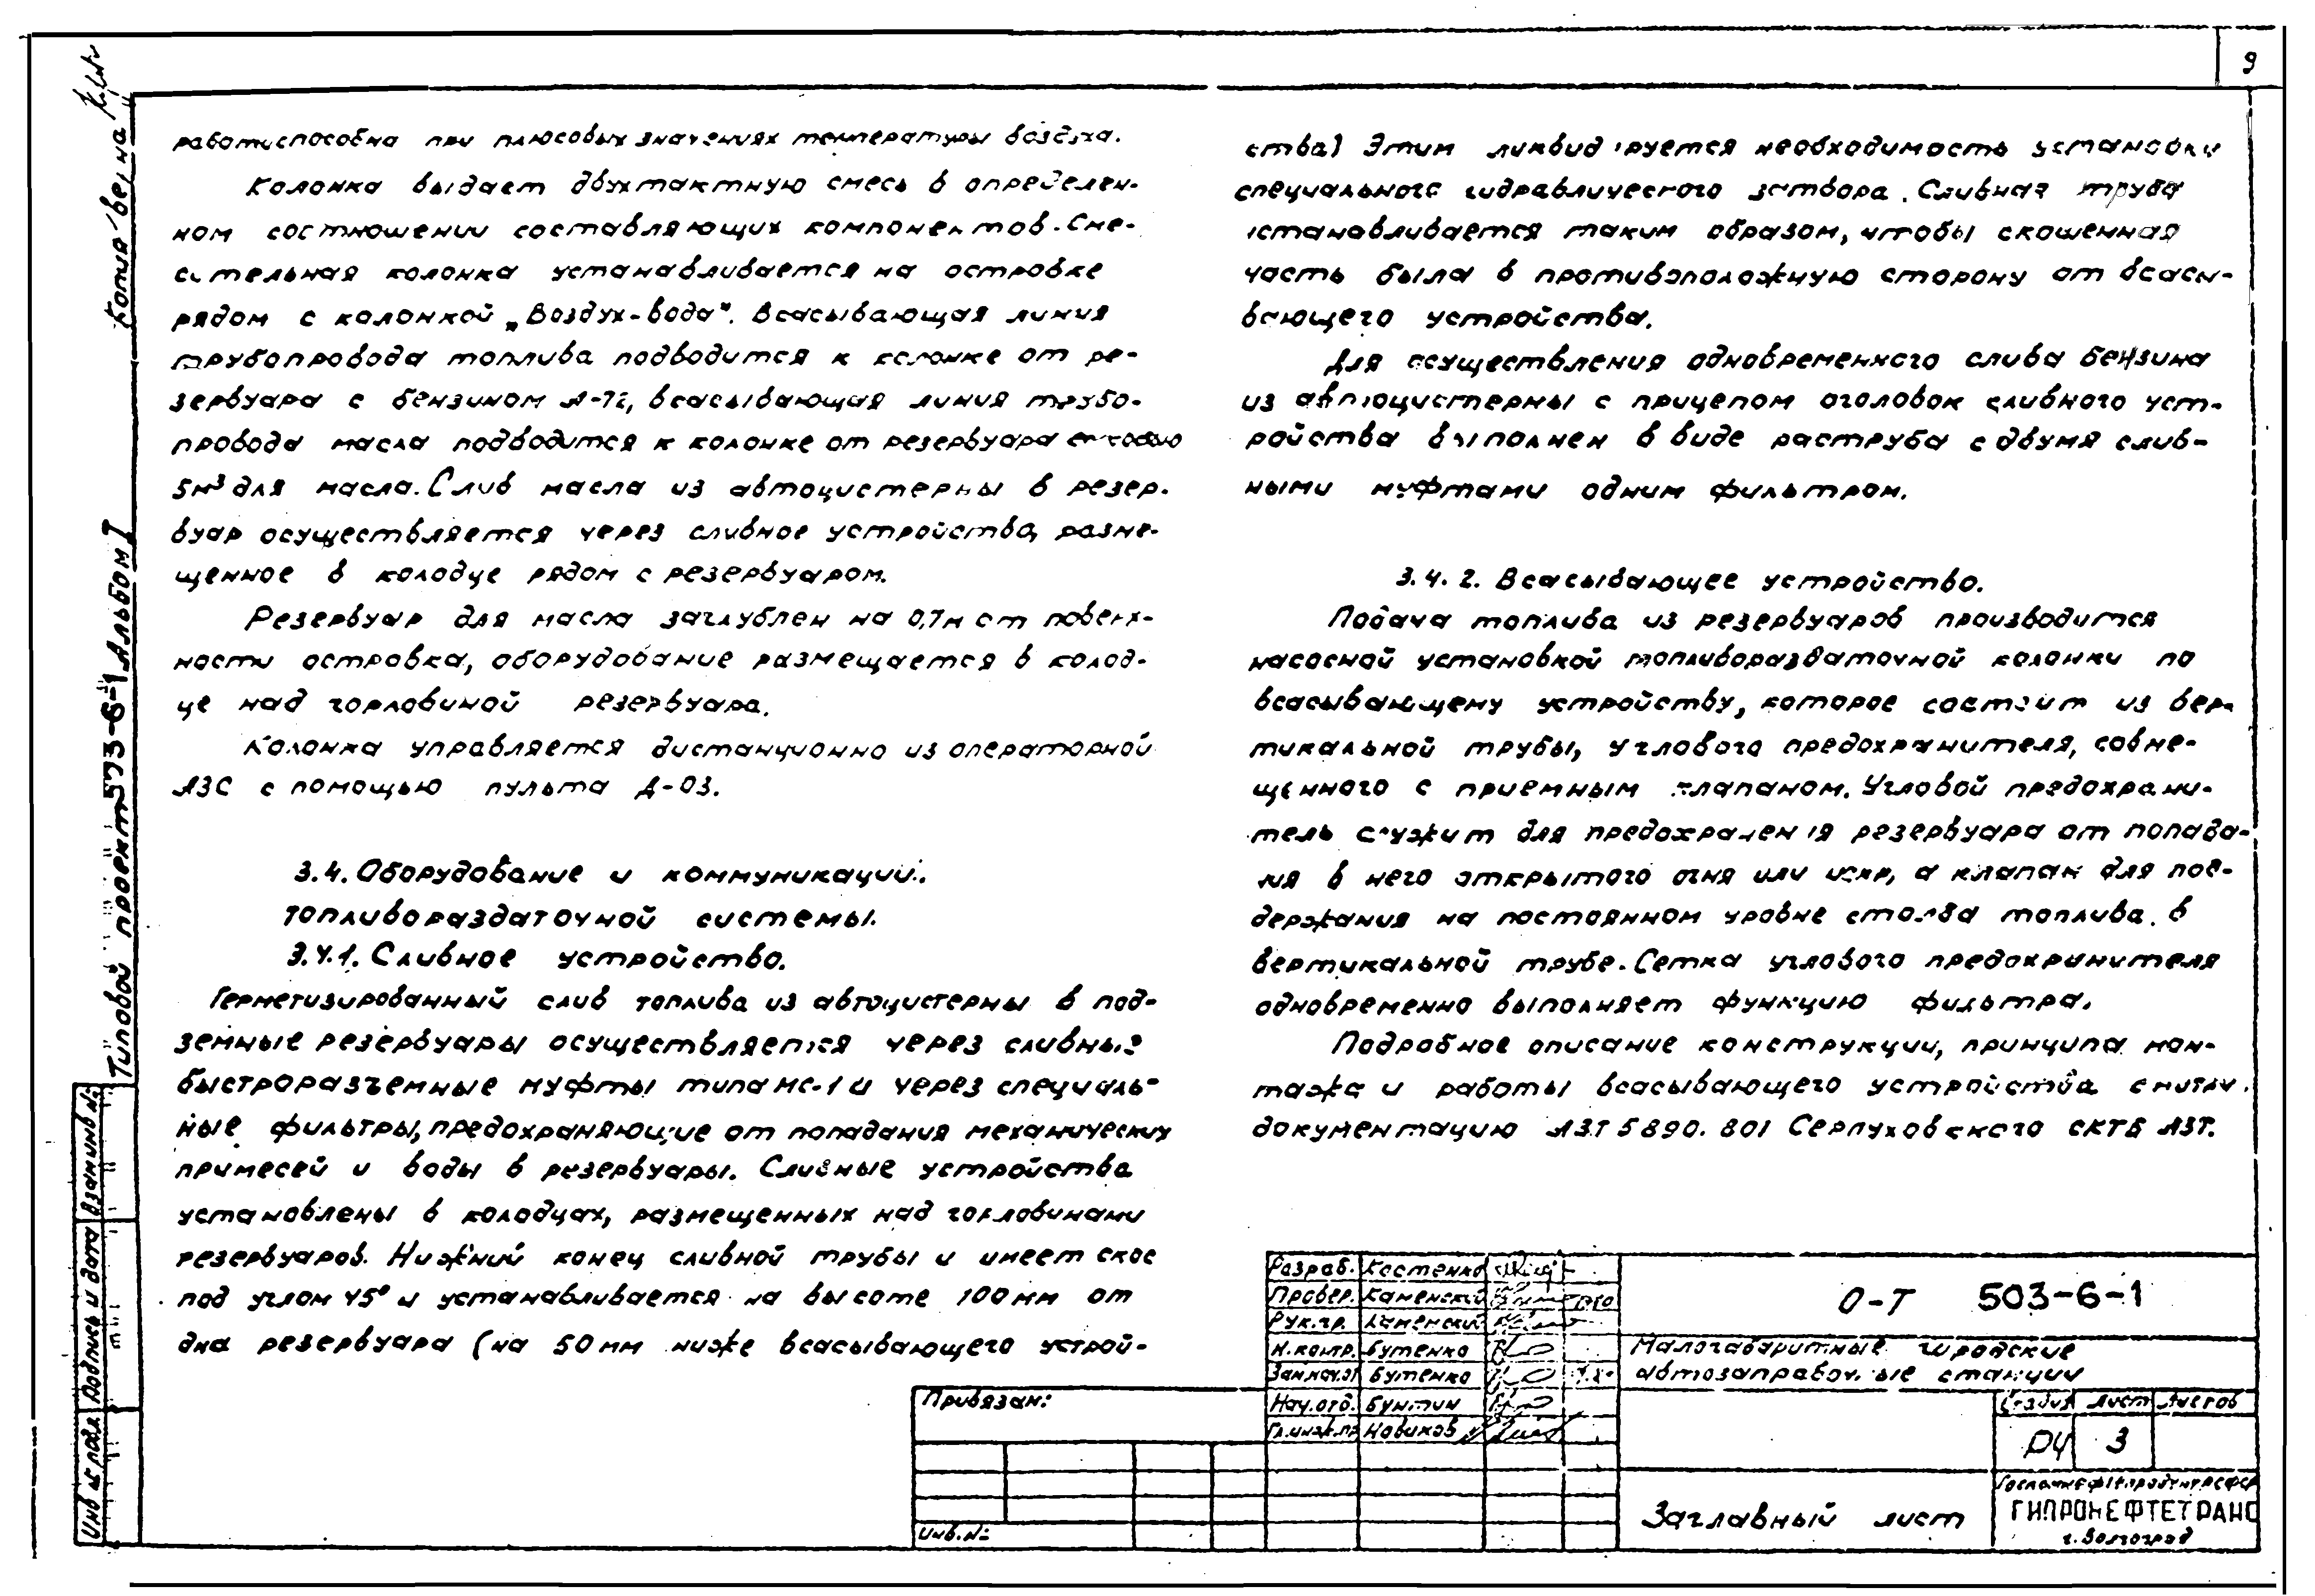 9
работоспособна при плюсовых значениях температуры воздуха.
Колонка выдает двухтактную смесь в определен-
ном состношении составляющих компонентов. Сме-
сительная колонка устанавливается на островке
рядом с колонкой „Воздух-вода". Всасывающая линия
трубопровода топлива подводится к колонке от ре-
зервуара с бензином А-72, всасывающая линия трубо-
провода масла подводится к колонке от резервуара
5м³ для масла. Слив масла из автоцистерны в резер-
вуар осуществляется через сливное устройство, разме-
щенное в колодце рядом с резервуаром.
Резервуар для масла заглублен на 0,7м от поверх-
ности островка, оборудование размещается в колод-
це над горловиной резервуара.
Колонка управляется дистанционно из операторной
АЗС с помощью пульта Д-03.
3.4. Оборудование и коммуникации
топливораздаточной системы.
3.4.1. Сливное устройство.
Герметизированный слив топлива из автоцистерны в под-
земные резервуары осуществляется через сливные
быстроразъемные муфты типа МС-1 и через специаль-
ные фильтры, предохраняющие от попадания механических
примесей и воды в резервуары. Сливные устройства
установлены в колодцах, размещенных над горловинами
резервуаров. Нижний конец сливной трубы и имеет скос
под углом 45° и устанавливается на высоте 100мм от
дна резервуара (на 50мм ниже всасывающего устрой-
ства) Этим ликвидируется необходимость установки
специального гидравлического затвора. Сливная труба
устанавливается таким образом, чтобы скошенная
часть была в противоположную сторону от всасы-
вающего устройства.
Для осуществления одновременного слива бензина
из автоцистерны с прицепом оголовок сливного уст-
ройства выполнен в виде раструба с двумя слив-
ными муфтами одним фильтром.
3.4.2. Всасывающее устройство.
Подача топлива из резервуаров производится
насосной установкой топливораздаточной колонки по
всасывающему устройству, которое состоит из вер-
тикальной трубы, углового предохранителя, совме-
щенного с приемным клапаном. Угловой предохрани-
тель служит для предохранения резервуара от попада-
ния в него открытого огня или искр, а клапан для под-
держания на постоянном уровне столба топлива в
вертикальной трубе. Сетка углового предохранителя
одновременно выполняет функцию фильтра.
Подробное описание конструкции, принципа мон-
тажа и работы всасывающего устройства смотри
документацию АЗТ 5890.801 Серпуховского СКТБ АЗТ.
Типовой проект 503-6-1 Альбом I
Взаминв №
Подпись и дата
Инв № подл
Разраб. Костенко
Провер. Каменский
Рук.гр. Каменский
Н.контр. Бутенко
Зам.нач.от Бутенко
Нач.отд. Бунтин
Гл.инж.пр Новиков
О-Т 503-6-1
Малогабаритные городские
автозаправочные станции
Стадия Лист Листов
РЧ 3
Заглавный лист
ГИПРОНЕФТЕТРАНС
г. Волгоград
Привязан:
Инв.№